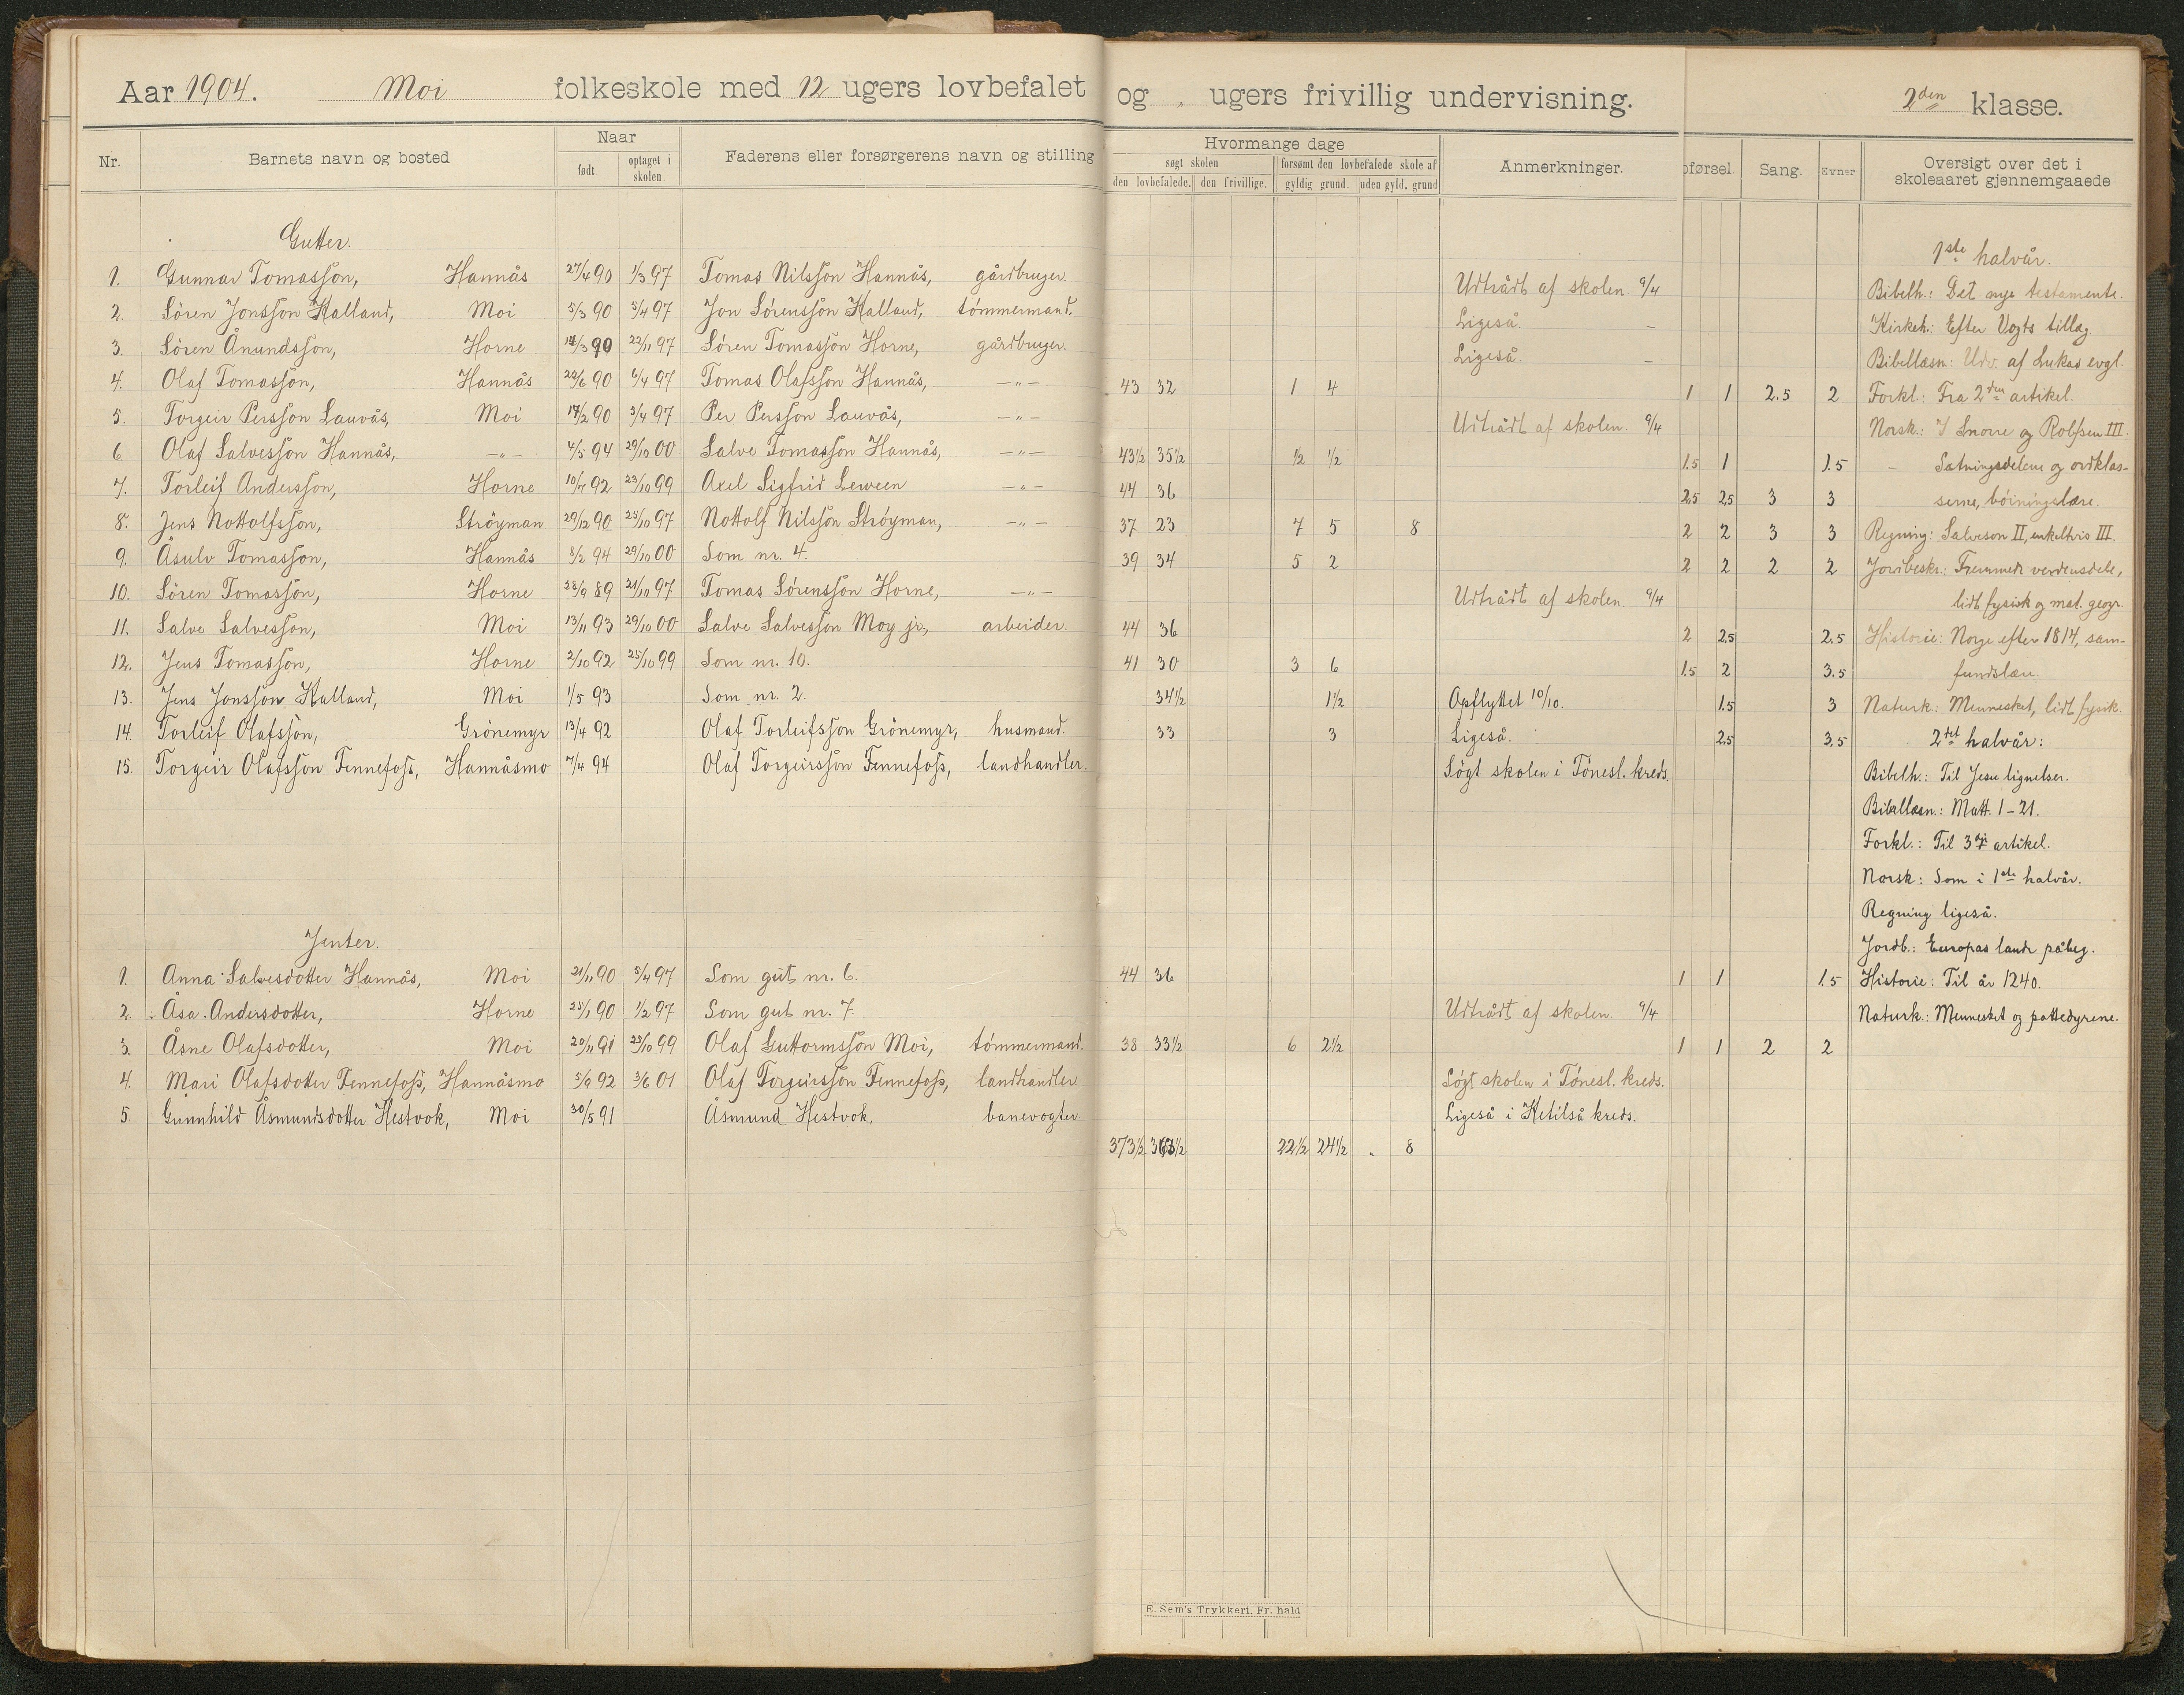 Aar 1904. Moi folkeskole med 12 ugers lovbefalet og „ ugers frivillig undervisning. 2den klasse.
Nr. Barnets navn og bosted Naar født optaget i skolen. Faderens eller forsørgerens navn og stilling Hvormange dage søgt skolen den lovbefalede. den frivillige. forsømt den lovbefalede skole af gyldig grund. uden gyld. grund Anmerkninger. pførsel. Sang. Evner Oversigt over det i skoleaaret gjennemgaaede
Gutter.
1. Gunnar Tomasson, Hannås 27/4 90 1/3 97 Tomas Nilsson Hannås, gårdbruger. Udtrådt af skolen 9/4
2. Sören Jonsson Kalland, Moi 5/3 90 5/4 97 Jon Sørensson Kalland, tømmermand. Ligeså. –
3. Sören Ånundsson, Horne 14/3 90 22/11 97 Sören Tomasson Horne, gårdbruger. Ligeså. –
4. Olaf Tomasson, Hannås 22/6 90 6/4 97 Tomas Olafsson Hannås, –„– 43 32 1 4 1 1 2.5 2
5. Torgeir Persson Lauvås, Moi 17/2 90 3/4 97 Per Persson Lauvås, –„– Udtrådt af skolen. 9/4
6. Olaf Salvesson Hannås, –„– 4/5 94 29/10 00 Salve Tomasson Hannås, –„– 43½ 35½ ½ ½ 1.5 1 1.5
7. Torleif Andersson, Horne 10/7 92 23/10 99 Axel Sigfrid Leween –„– 44 36 2.5 2.5 3 3
8. Jens Nottolfsson, Ströyman 29/12 90 25/10 97 Nottolf Nilsson Ströyman, –„– 37 23 7 5 8 2 2 3 3
9. Åsulv Tomasson, Hannås 8/2 94 29/10 00 Som nr. 4. 39 34 5 2 2 2 2 2
10. Sören Tomasson, Horne 28/9 89 21/10 97 Tomas Sörensson Horne, –„– Udtrådt af skolen. 9/4
11. Salve Salvesson, Moi 13/11 93 29/10 00 Salve Salvesson Moy jr., arbeider. 44 36 2 2.5 2.5
12. Jens Tomasson, Horne 2/10 92 25/10 99 Som nr. 10. 41 30 3 6 1.5 2 3.5
13. Jens Jonsson Kalland, Moi 1/5 93 Som nr. 2. 34½ 1½ Opflyttet 10/10. 1.5 3
14. Torleif Olafsson, Grönemyr 13/4 92 Olaf Torleifsson Grönemyr, husmand. 33 3 Ligeså. 2.5 3.5
15. Torgeir Olafsson Fennefoss, Hannåsmo 7/4 94 Olaf Torgeirsson Fennefoss, landhandler. Sögt skolen i Tönesl. kreds.
Jenter.
1. Anna Salvesdotter Hannås, Moi 21/11 90 5/4 97 Som gut nr. 6. 44 36 1 1 1.5
2. Åsa Andersdotter, Horne 25/1 90 1/2 97 Som gut nr. 7. Udtrådt af skolen. 9/4
3. Åsne Olafsdotter, Moi 20/11 91 23/10 99 Olaf Guttormsson Moi, tömmermand. 38 33½ 6 2½ 1 1 2 2
4. Mari Olafsdotter Fennefoss, Hannåsmo 5/9 92 3/6 01 Olaf Torgeirsson Fennefoss, landhandler Sögt skolen i Tönesl. kreds.
5. Gunnhild Åsmundsdotter Hestvok, Moi 30/5 91 Åsmund Hestvok, banevogter Ligeså i Ketilså kreds.
373½ 22½ 24½ „ 8
1ste halvår.
Bibelh.: Det nye testamente.
Kirkeh.: Efter Vogts tillæg
Bibellæsn: Udv. af Lukas evgl.
Forkl.: Fra 2den artikel.
Norsk.: I Snorre og Rolfsen III.
– Sætningsdelene og ordklas-
serne, böiningslære.
Regning: Salveson II, enkeltvis III.
Jordbeskr.: Fremmede verdensdele,
lidt fysisk og mat. geogr.
Historie: Norge efter 1814, sam-
fundslære.
Naturk.: Mennesket, lidt fysik.
2det halvår:
Bibelh.: Til Jesu lignelser.
Bibellæsn.: Matt. 1–21.
Forkl.: Til 3dje artikel.
Norsk: Som i 1ste halvår.
Regning ligeså.
Jordb.: Europas lande påbeg.
Historie: Til år 1240.
Naturk.: Mennesket og pattedyrene.
E. Sem's Trykkeri, Fr. hald